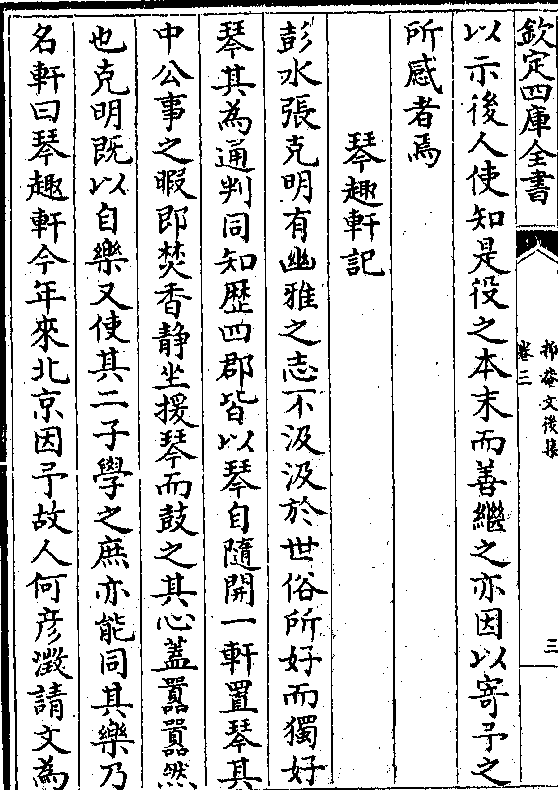 欽定四庫全書
抑菴文後集
卷三
三
以示後人使知是役之本末而善繼之亦因以寄予之
所感者焉
琴趣軒記
彭水張克明有幽雅之志不汲汲於世俗所好而獨好
琴其為通判同知歴四郡皆以琴自隨開一軒置琴其
中公事之暇即焚香静坐援琴而鼓之其心蓋囂囂然
也克明既以自樂又使其二子學之庶亦能同其樂乃
名軒曰琴趣軒今年來北京因予故人何彦澂請文為